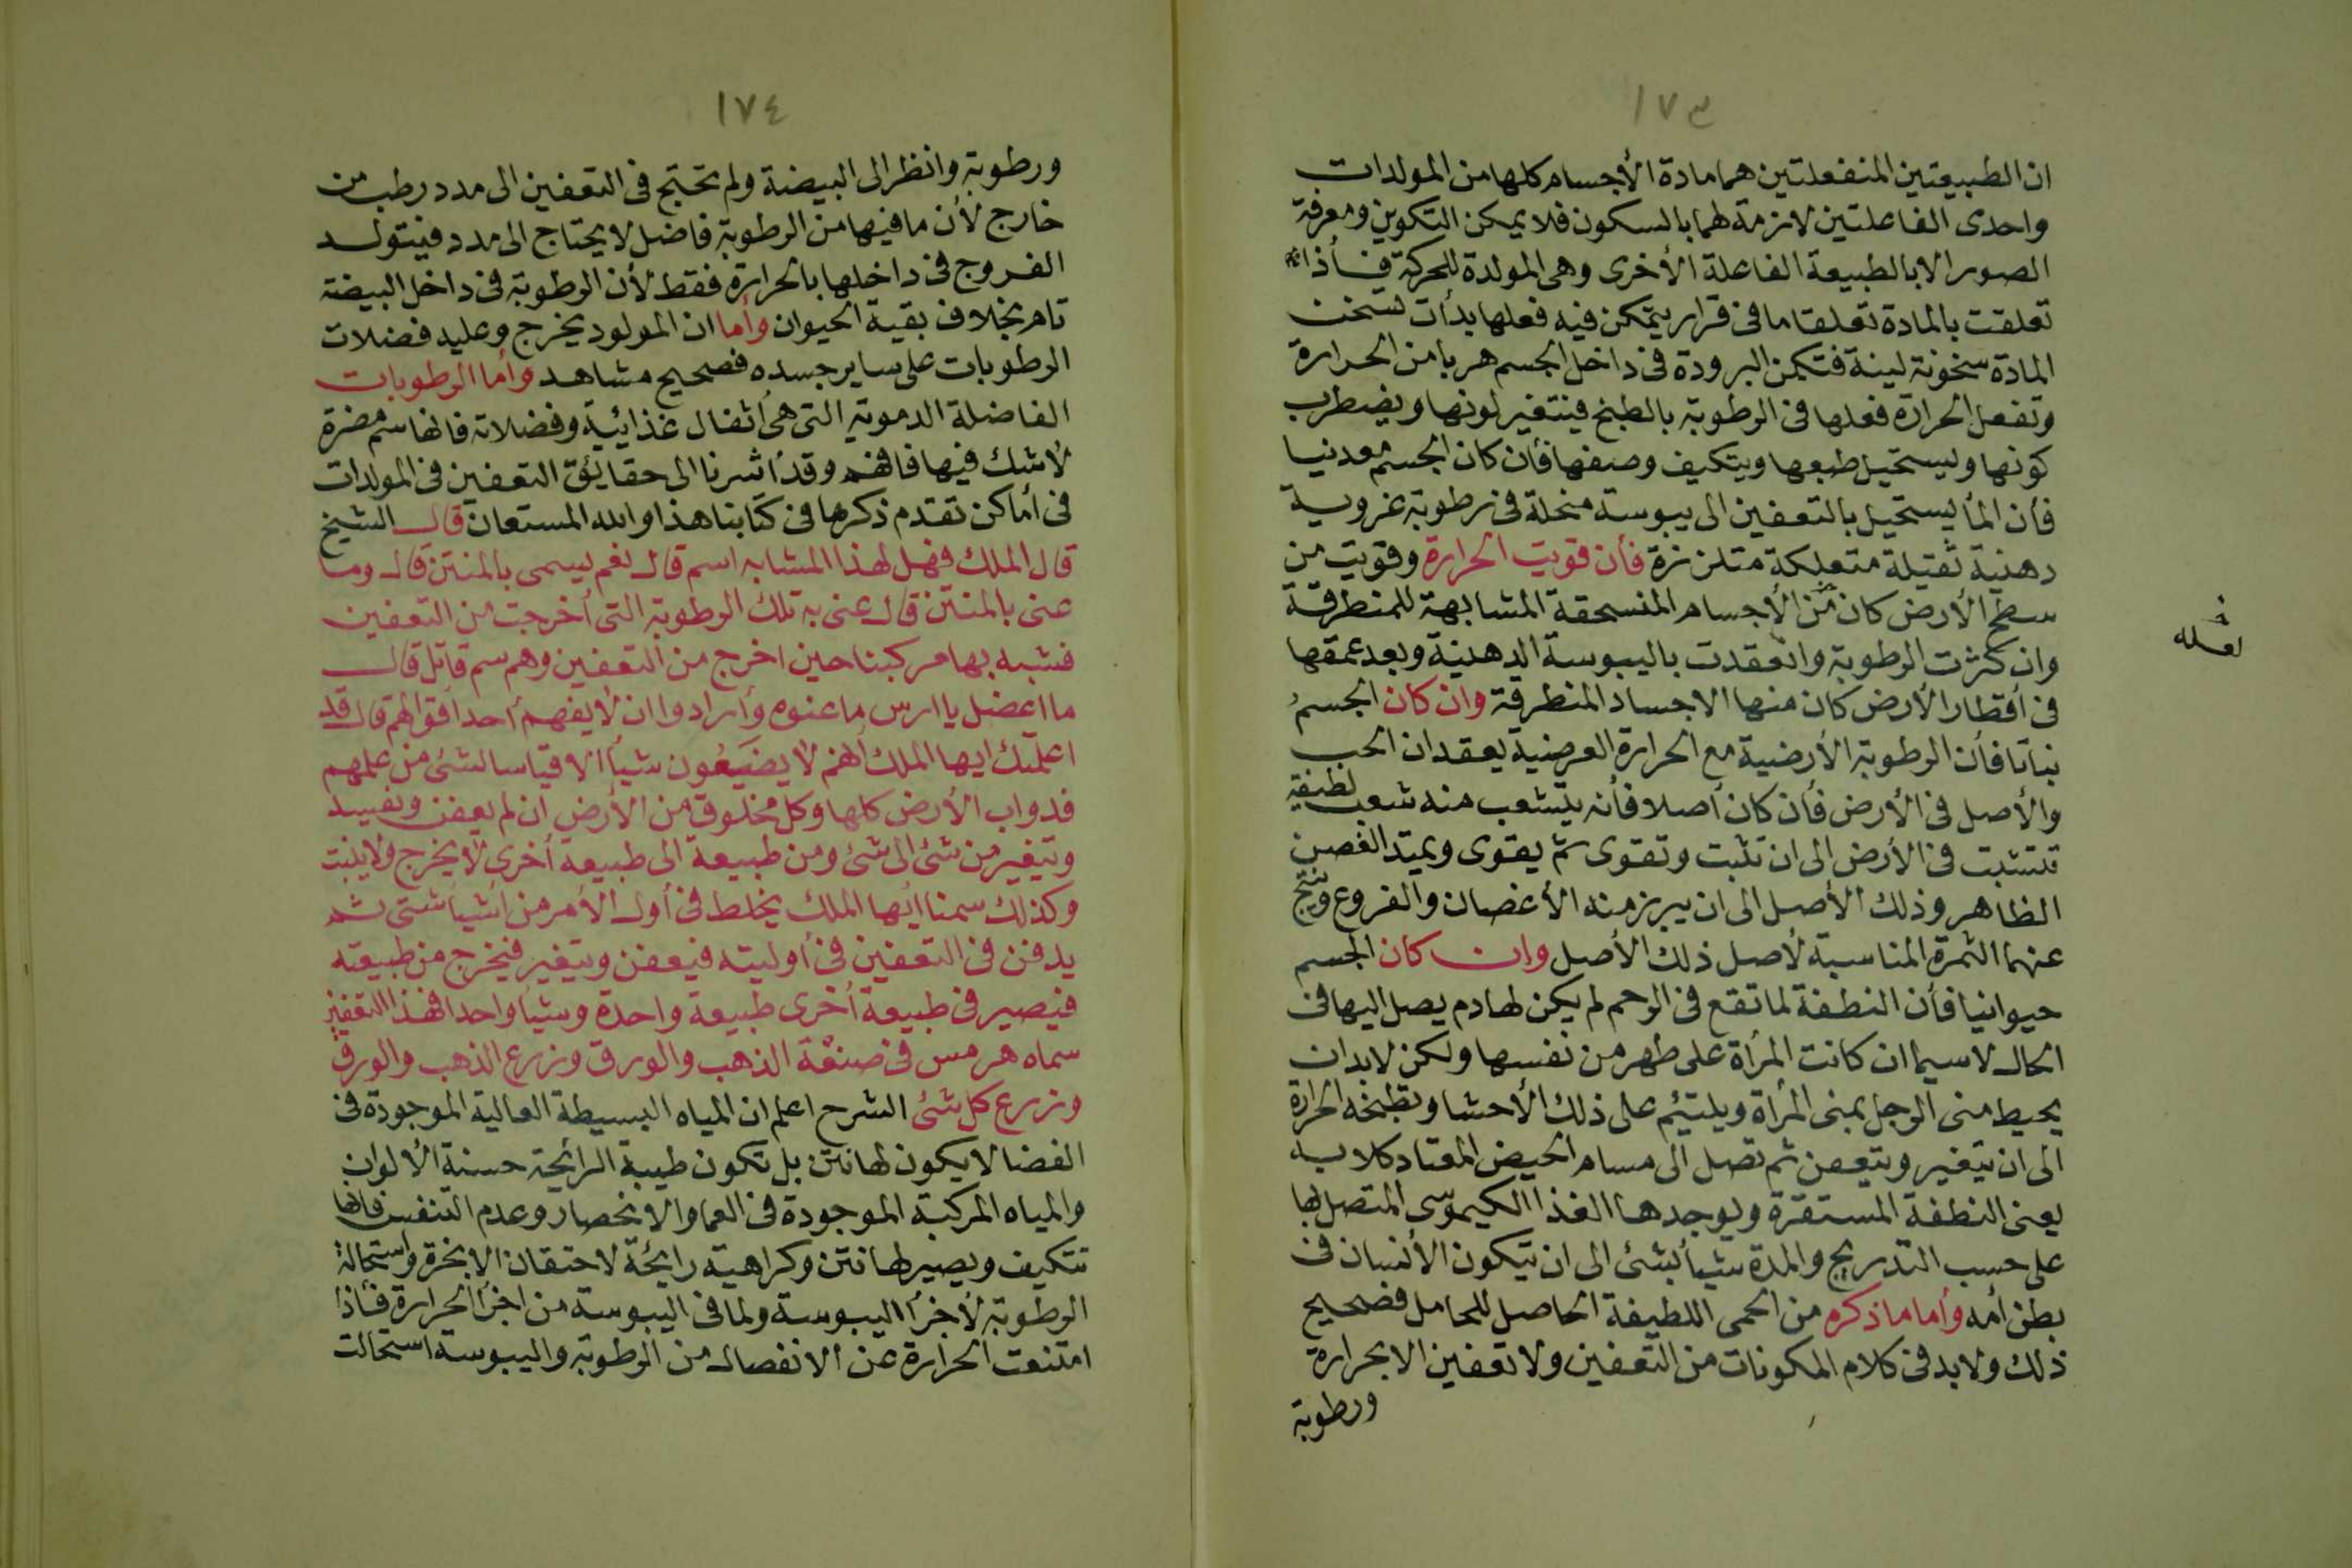 ١٧٣
ان الطبيعتين المنفعلتين هما مادة الأجسام كلها من المولدات
واحدى الفاعلتين لازمة لهما بالسكون فلا يمكن التكوين ومعرفة
الصور الا بالطبيعة الفاعلة الأخرى وهى المولدة للحركة فأذا
تعلقت بالمادة تعلقا ما فى قرار يتمكن فيه فعلها بدأت تسخن
المادة سخونة لينة فتكمن البرودة فى داخل الجسم هربا من الحرارة
وتفعل الحرارة فعلها فى الرطوبة بالطبخ فيتغير لونها ويضطرب
كونها ويستحيل طبعها ويتكيف وصفها فأن كان الجسم معدنيا
فأن المأ يستحيل بالتعفين الى يبوسة منحلة فى رطوبة غروية
دهنية ثقيلة متعلكة متلززة فأن قويت الحرارة وقويت من
سطح الأرض كان من الأجسام المنسحقة المشابهة للمنطرقة
وان كثرت الرطوبة وانعقدت باليبوسة الدهنية وبعد عمقها
فى أقطار الأرض كان منها الاجساد المنطرقة وان كان الجسم
نباتا فأن الرطوبة الأرضية مع الحرارة العرضية يعقدان الحب
والأصل فى الأرض فأن كان أصلا فأنه يتشعب منه شعب لطيفة
تتشبت فى الأرض الى ان تثبت وتقوى ثم يقوى ويمتد الغصن
الظاهر وذلك الأصل الى ان يبرز منه الأغصان والفروع وينتج
عنهما الثمرة المناسبة لأصل ذلك الأصل وان كان الجسم
حيوانيا فأن النطفة لما تقع فى الرحم لم يكن لها دم يصل اليها فى
الحال لا سيما ان كانت المرأة على طهر من نفسها ولكن لا بد ان
يحيط منى الرجل بمنى المرأة ويلتئم على ذلك الأحشا وتطبخه الحرارة
الى ان يتغير ويتعفن ثم تصل الى مسام الحيض المعتاد
يعنى النطفة المستقرة ويوجدها الغذا الكيموسى المتصل بها
على حسب التدريج والمدة شيأ بشئ الى ان يتكون الأنسان فى
بطن أمه وأما ما ذكره من الحمى اللطيفة الحاصل للحامل فصحيح
ذلك ولا بد فى كلام المكونات من التعفين ولا تعفين الا بحرارة
ورطوبة
لعله
١٧٤
ورطوبة وانظر الى البيضة ولم تحتج فى التعفين الى مدد رطب من
خارج لأن ما فيها من الرطوبة فاضل لا يحتاج الى مدد فيتولد
الفروج فى داخلها بالحرارة فقط لأن الرطوبة فى داخل البيضة
تام بخلاف بقية الحيوان وأما ان المولود يخرج وعليه فضلات
الرطوبات على ساير جسده فصحيح مشاهد وأما الرطوبات
الفاضلة الدموية التى هى أثفال غذائية وفضلاته فانها سم مضرة
لا شك فيها فافهم وقد أشرنا الى حقايق التعفين فى المولدات
فى أماكن تقدم ذكرها فى كتابنا هذا والله المستعان قال الشيخ
قال الملك فهل لهذا المشابه اسم قال نعم يسمى بالمنتن قال وما
عنى بالمنتن قال عنى به تلك الرطوبة التى أخرجت من التعفين
فشبه بها مركبنا حين اخرج من التعفين وهم سم قاتل قال
ما اعضل يا ارس ما عنوه وأرادوا ان لا يفهم أحد اقوالهم قال قد
اعلمتك ايها الملك انهم لا يضيعون شيأ الا قياسا لشئ من علمهم
فدواب الأرض كلها وكل مخلوق من الأرض ان لم يعفن ويفسد
ويتغير من شئ الى شئ ومن طبيعة الى طبيعة أخرى لا يخرج ولا ينبت
وكذلك سمنا ايها الملك يخلط فى أول الأمر من اشيأ شتى ثم
يدفن فى التعفين فى أوليته فيعفن ويتغير فيخرج من طبيعته
فيصير فى طبيعة أخرى طبيعة واحدة وشيأ واحدا فهذا التعفين
سماه هرمس فى صنعة الذهب والورق وزرع الذهب والورق
وزرع كل شئ الشرح اعلم ان المياه البسيطة العالية الموجودة فى
الفضا لا يكون لها نتن بل تكون طيبة الرائحة حسنة الألوان
والمياه المركبة الموجودة فى العما والانحصار وعدم التنفس فانها
تتكيف ويصير لها نتن وكراهية رايحة لاحتقان الابخرة واستحالة
الرطوبة لأجزأ اليبوسة ولما فى اليبوسة من اجزأ الحرارة فأذا
امتنعت الحرارة عن الانفصال من الرطوبة واليبوسة استحالت